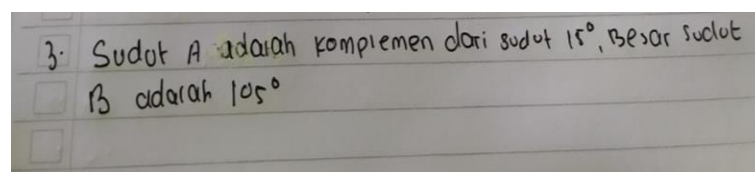 3. Sudut A adalah komplemen dari sudut 15°, Besar sudut
B adalah 105°